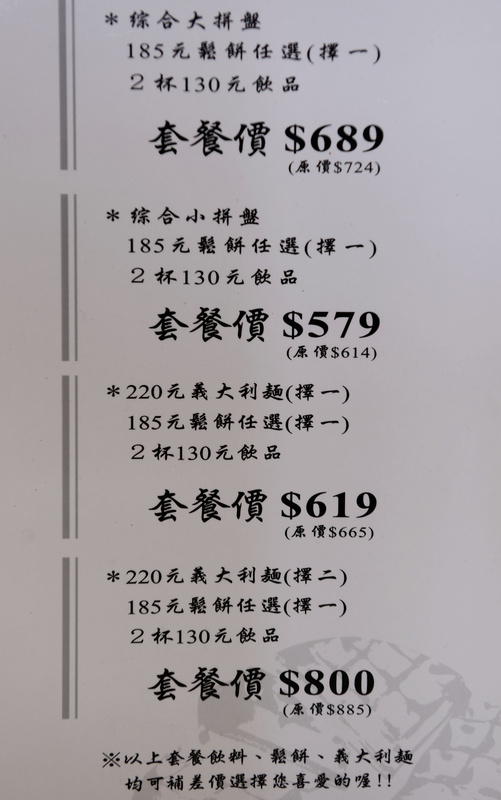 ＊綜合大拼盤
185元鬆餅任選(擇一)
2杯130元飲品
套餐價 $689
(原價$724)
＊綜合小拼盤
185元鬆餅任選(擇一)
2杯130元飲品
套餐價 $579
(原價$614)
＊220元義大利麵(擇一)
185元鬆餅任選(擇一)
2杯130元飲品
套餐價 $619
(原價$665)
＊220元義大利麵(擇二)
185元鬆餅任選(擇一)
2杯130元飲品
套餐價 $800
(原價$885)
※以上套餐飲料、鬆餅、義大利麵
均可補差價選擇您喜愛的喔!!